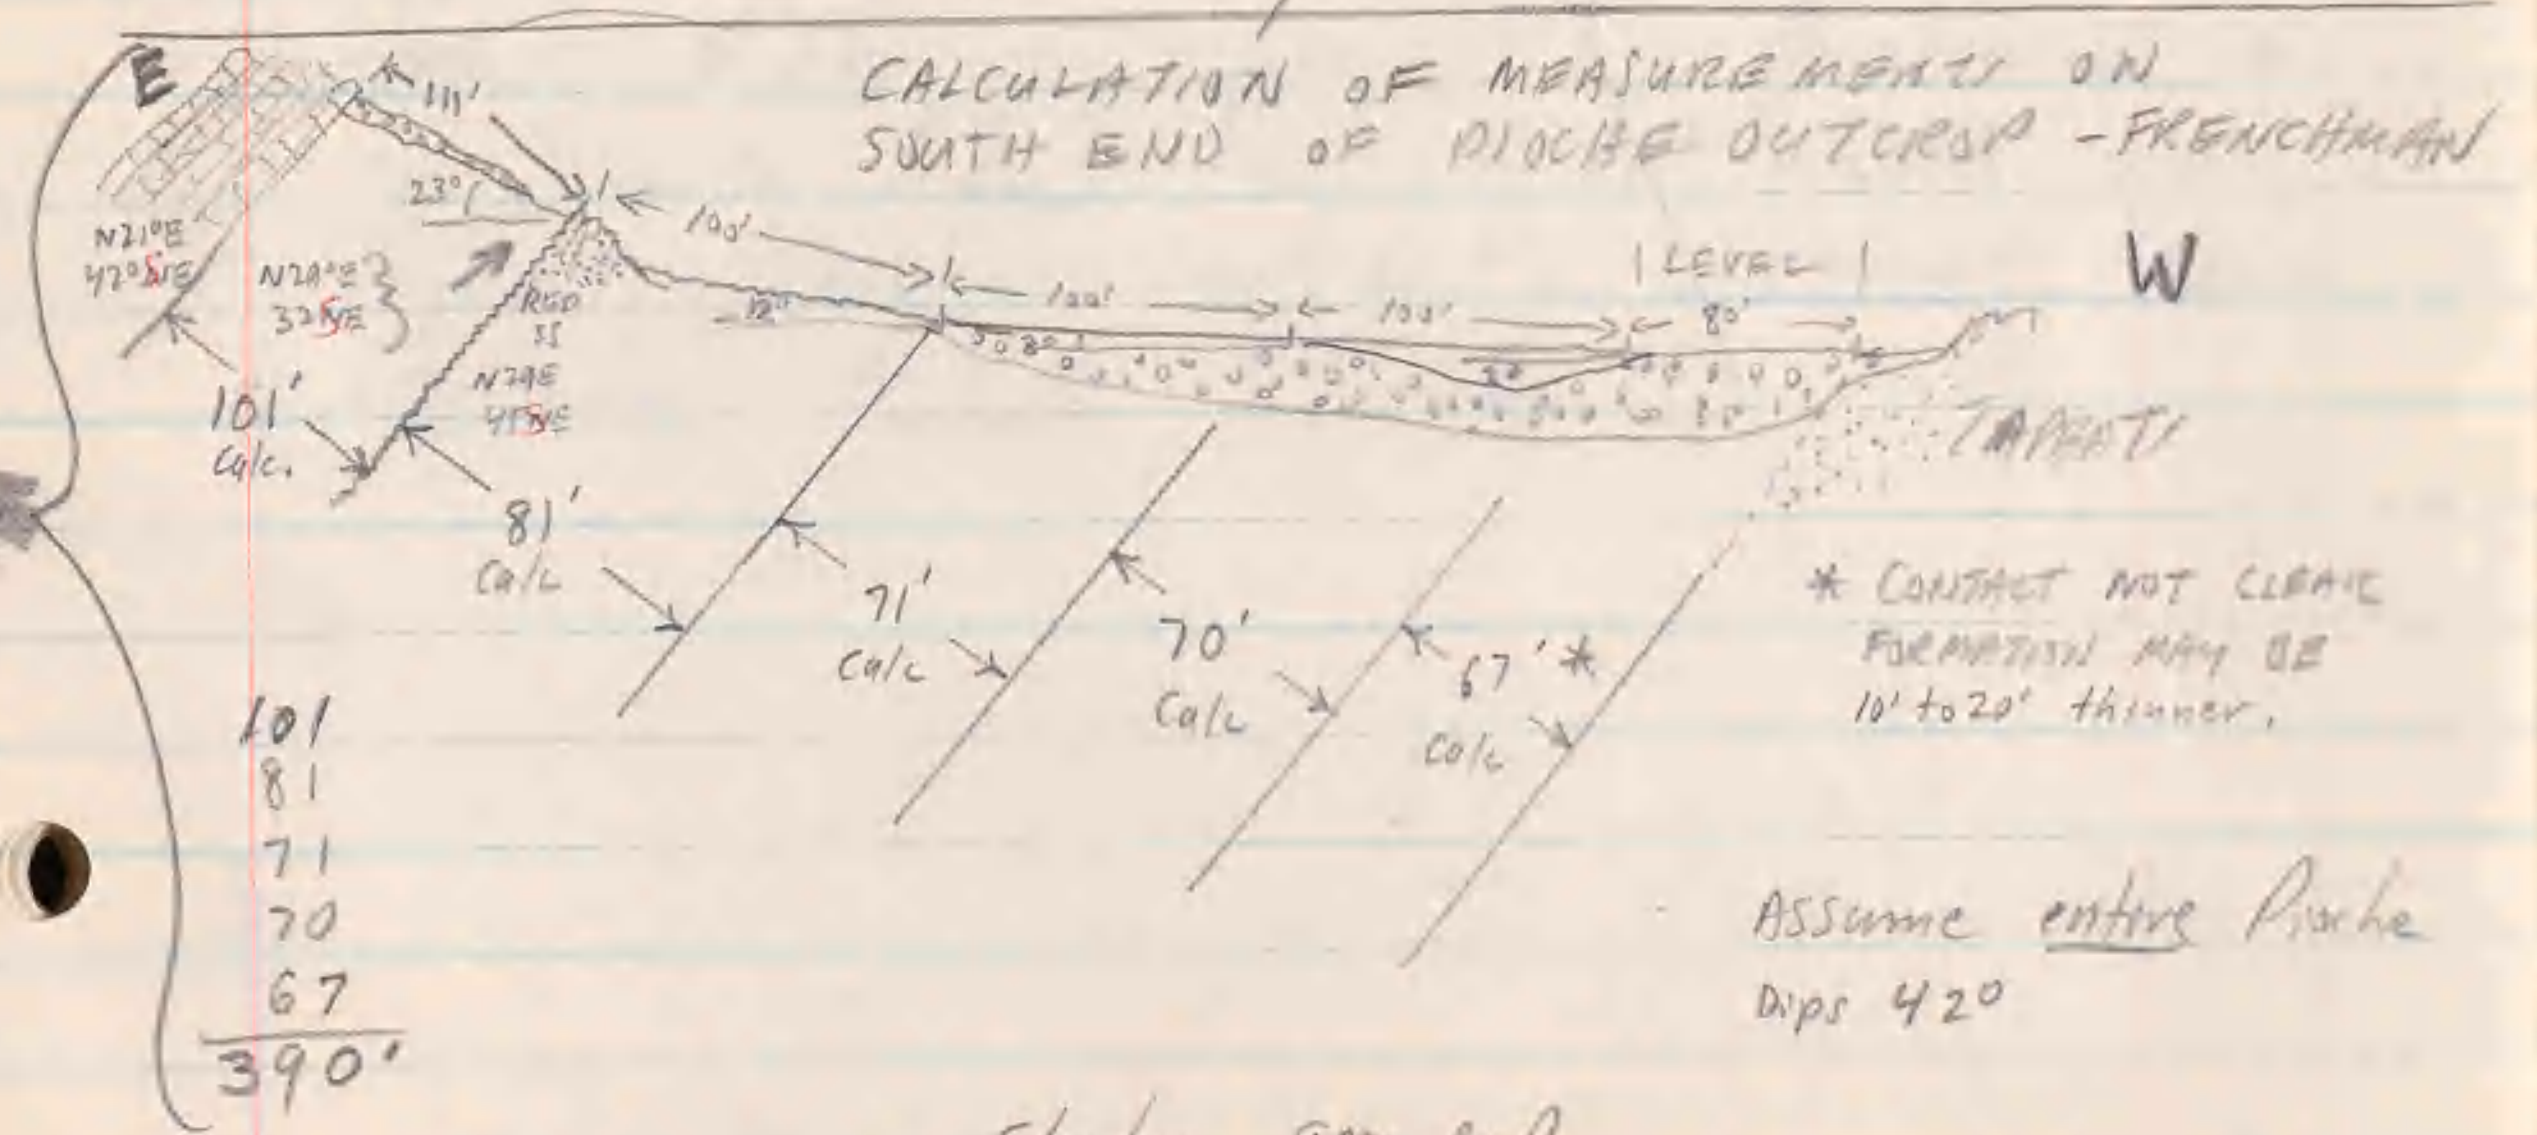 E
111'
CALCULATION OF MEASUREMENTS ON
SOUTH END OF PIOCHE OUTCROP - FRENCHMAN
23°
100'
N21°E
42° SE
N20°E
32 SE
RED
SS
N29E
45 SE
12°
100'
100'
LEVEL
80'
W
TAPEATS
101'
Calc.
81'
Calc
71'
Calc
70'
Calc
67' *
Calc
* CONTACT NOT CLEAR
FORMATION MAY BE
10' to 20' thinner.
101
81
71
70
67
390'
Assume entire Pioche
Dips 42°